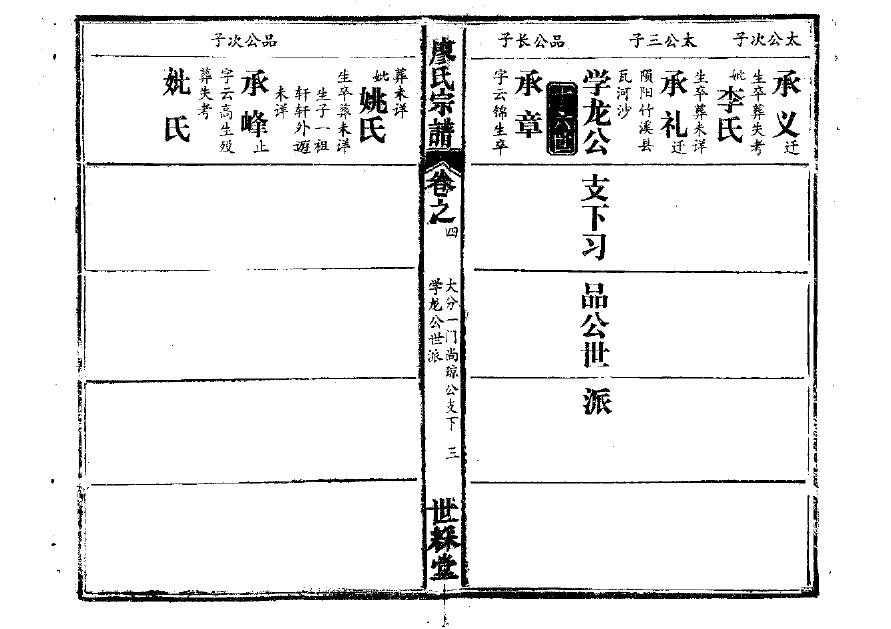 太公次子
承义迁
生卒葬失考
妣李氏
生卒葬未详
太公三子
承礼迁
陨阳竹溪县
瓦河沙
学龙公支下习品公世派
十六世
品公长子
承章
字云锦生卒
廖氏宗譜
卷之四
大分一门尚琼公支下
学龙公世派
三
世綵堂
葬未详
妣姚氏
生卒葬未详
生子一祖
轩轩外遊
未详
品公次子
承峰止
字云高生殁
葬失考
妣氏